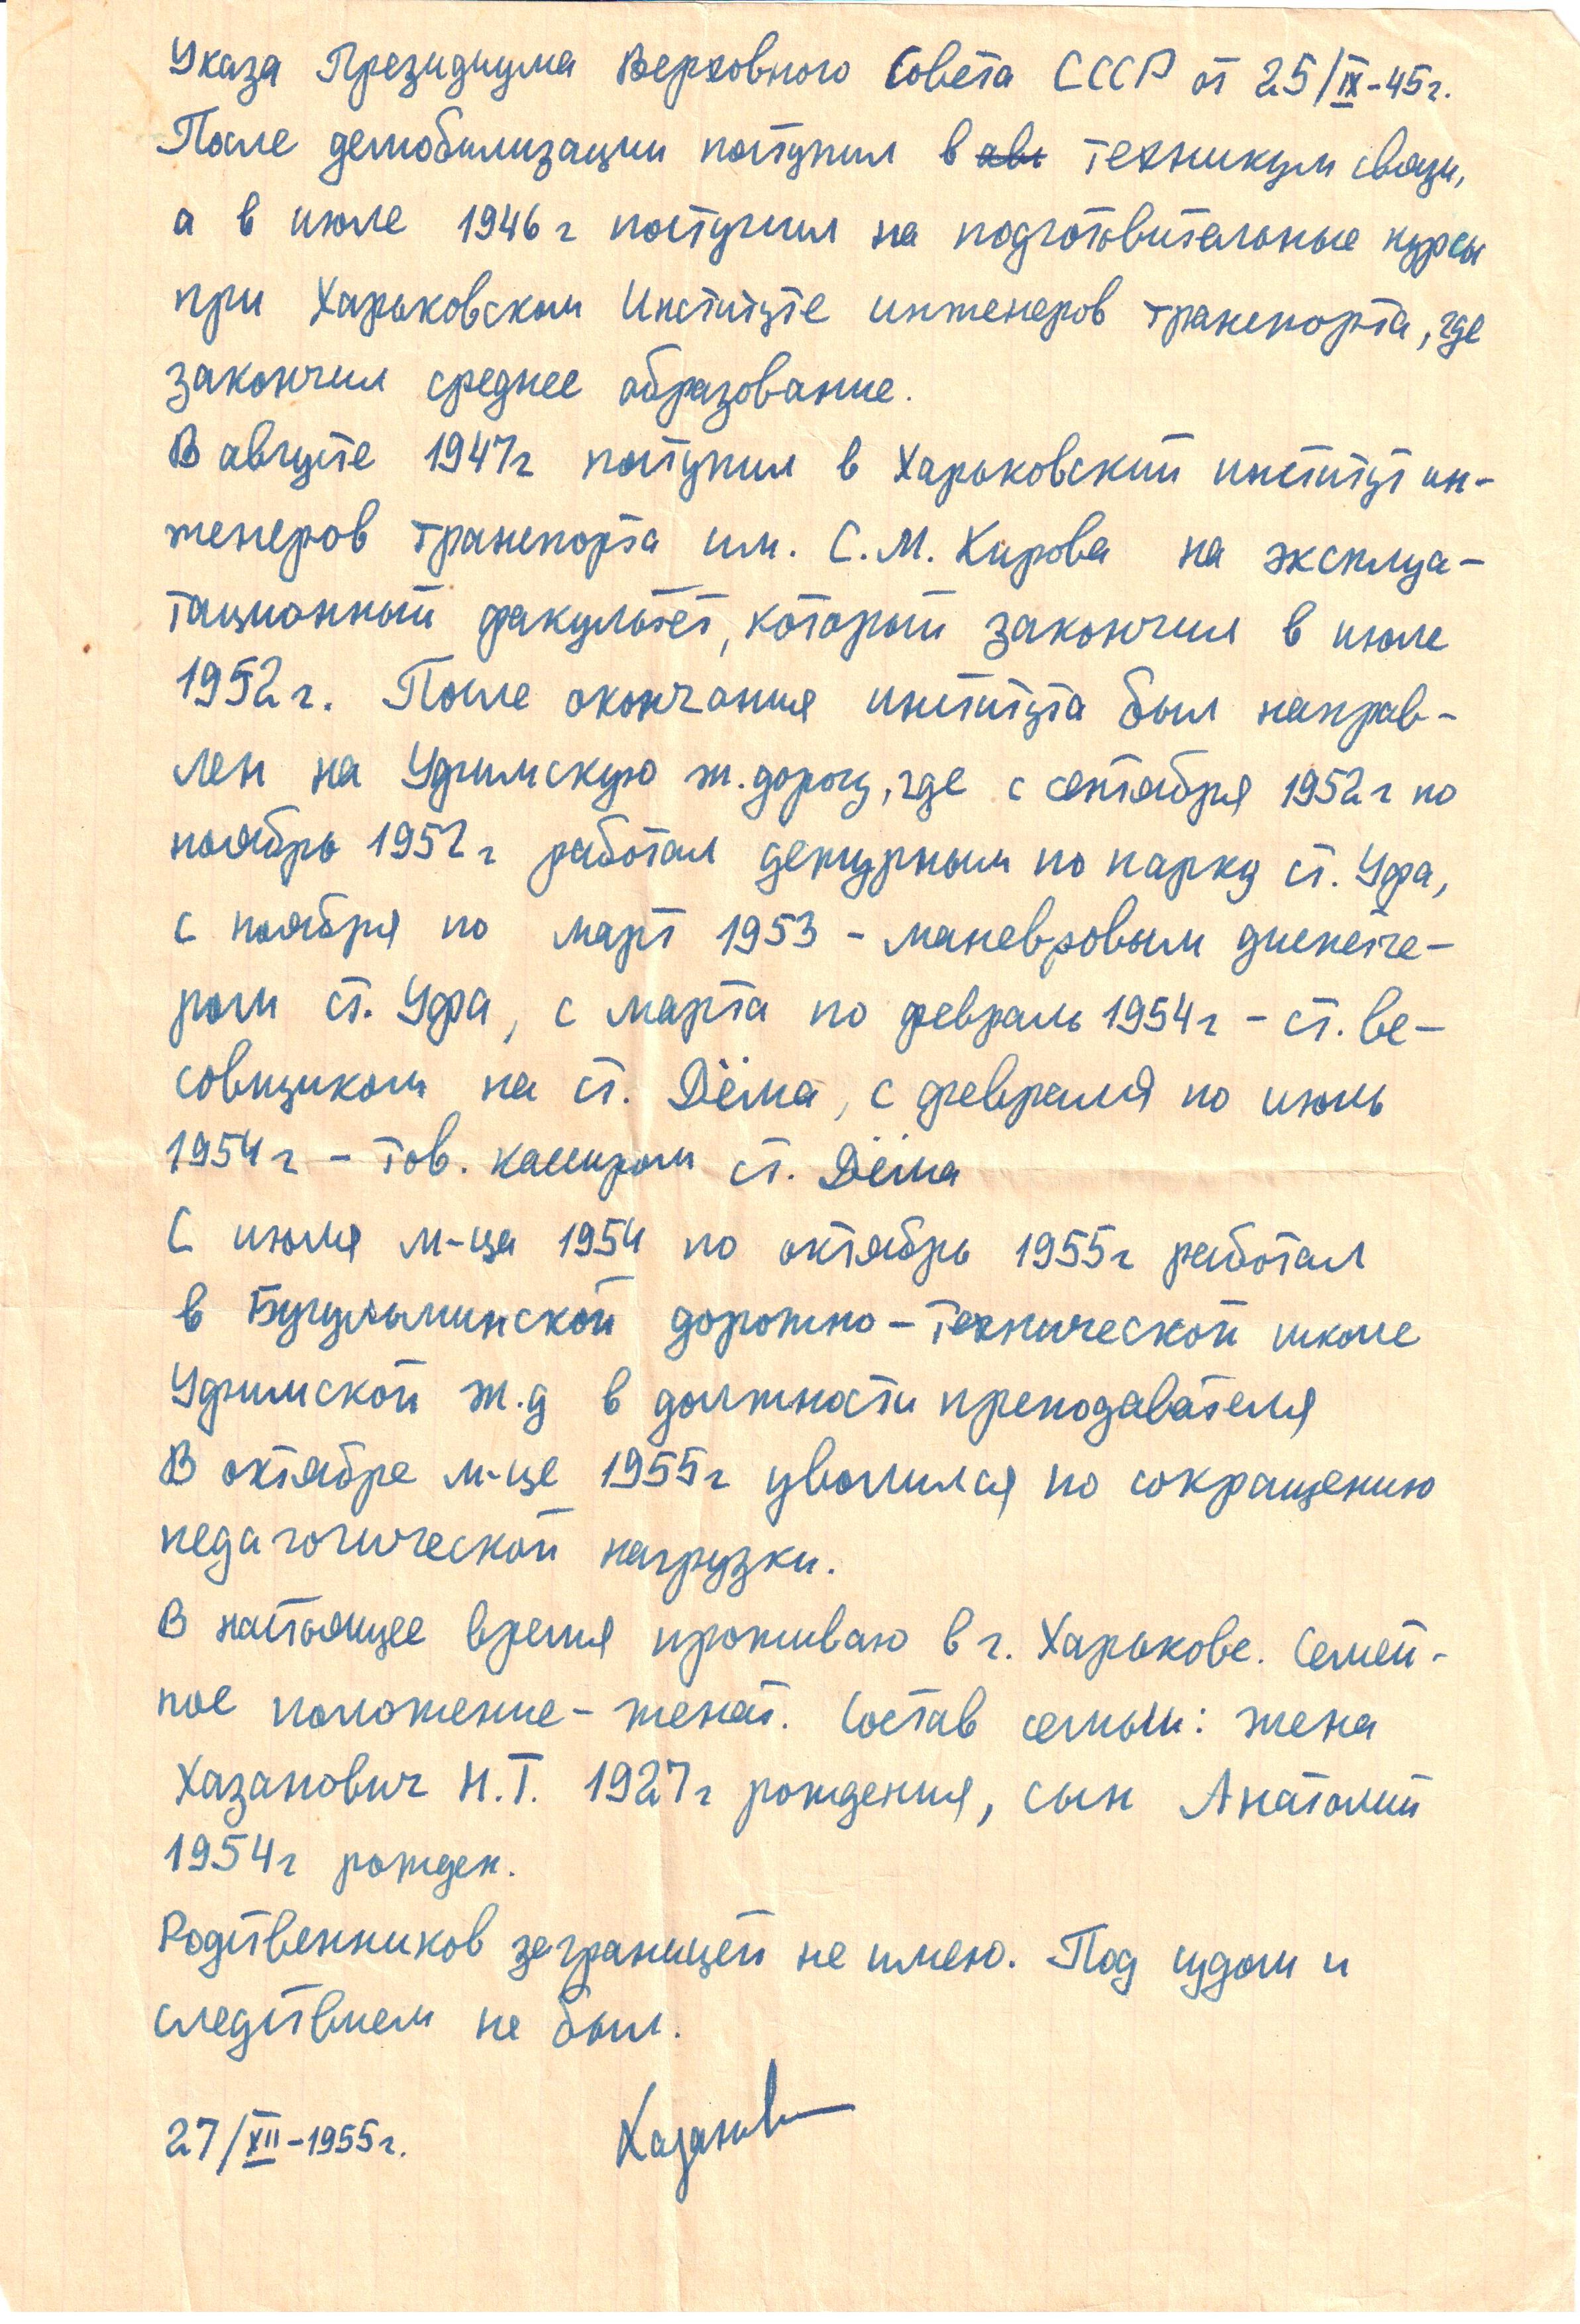 Указа Президиума Верховного Совета СССР от 25/IX-45г.
После демобилизации поступил в авт техникум связи,
а в июле 1946 г поступил на подготовительные курсы
при Харьковском Институте инженеров транспорта, где
закончил среднее образование.
В августе 1947г поступил в Харьковский институт ин-
женеров транспорта им. С.М. Кирова на эксплуа-
тационный факультет, который закончил в июле
1952г. После окончания института был направ-
лен на Уфимскую ж.дорогу, где с сентября 1952г по
ноябрь 1952г работал дежурным по парку ст. Уфа,
с ноября по март 1953 - маневровым диспетче-
ром ст. Уфа, с марта по февраль 1954г - ст. ве-
совщиком на ст. Дёма, с февраля по июль
1954г - тов. кассиром ст. Дёма
С июля м-ца 1954 по октябрь 1955г работал
в Бугульминской дорожно-технической школе
Уфимской ж.д в должности преподавателя
В октябре м-це 1955г уволился по сокращению
педагогической нагрузки.
В настоящее время проживаю в г. Харькове. Семей-
ное положение - женат. Состав семьи: жена
Хазанович Н.Т. 1927г рождения, сын Анатолий
1954г рожден.
Родственников заграницей не имею. Под судом и
следствием не был.
27/XII-1955г. Хазанов